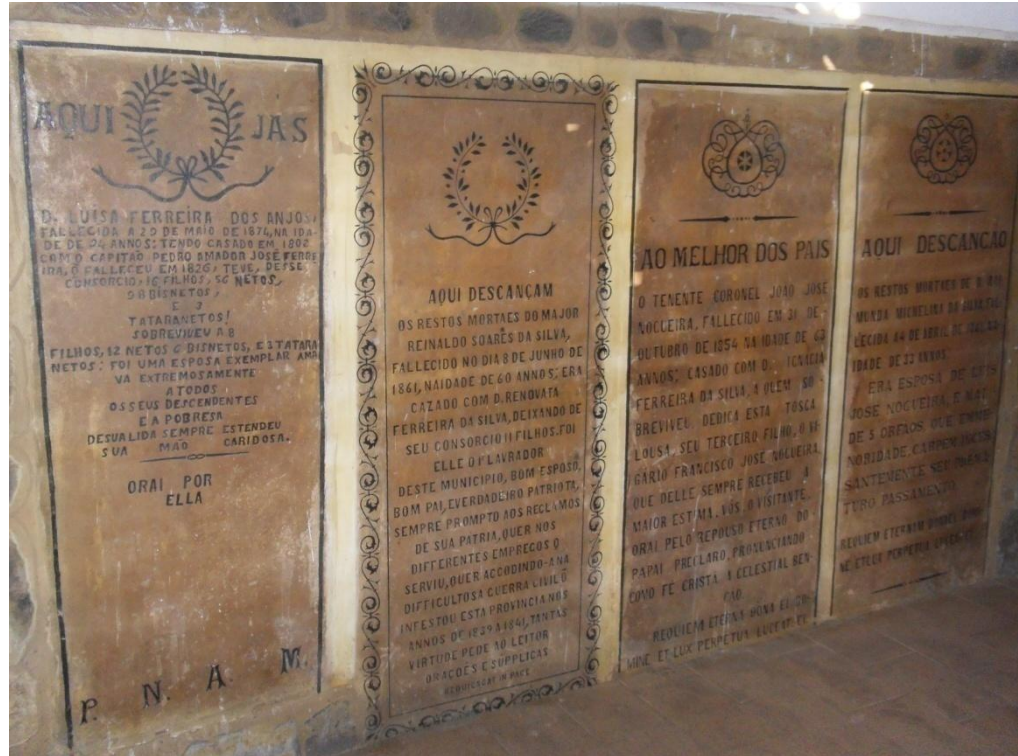 AQUI JAS
D. LUISA FERREIRA DOS ANJOS;
FALLECIDA A 29 DE MAIO DE 1874, NA IDA-
DE DE 94 ANNOS: TENDO CASADO EM 1802
COM O CAPITÃO PEDRO AMADOR JOSÉ FERRE
IRA, Q FALLECEU EM 1826; TEVE, DESSE
CONSORCIO, 16 FILHOS, 56 NETOS,
98 BISNETOS,
E 7
TATARANETOS!
SOBREVIVEU A 8
FILHOS, 12 NETOS 6 BISNETOS, E 3 TATARA
NETOS: FOI UMA ESPOSA EXEMPLAR AMA
VA EXTREMOSAMENTE
A TODOS
OS SEUS DESCENDENTES
E A POBRESA
DESVALIDA SEMPRE ESTENDEU
SUA MÃO CARIDOSA.
ORAI POR
ELLA
P. N. A. M.
AQUI DESCANÇAM
OS RESTOS MORTAES DO MAJOR
REINALDO SOARES DA SILVA,
FALLECIDO NO DIA 8 DE JUNHO DE
1861, NA IDADE DE 60 ANNOS; ERA
CAZADO COM D. RENOVATA
FERREIRA DA SILVA, DEIXANDO DE
SEU CONSORCIO 11 FILHOS. FOI
ELLE O 1º LAVRADOR
DESTE MUNICIPIO, BOM ESPOSO,
BOM PAI, E VERDADEIRO PATRIOTA,
SEMPRE PROMPTO AOS RECLAMOS
DE SUA PATRIA, QUER NOS
DIFFERENTES EMPREGOS Q
SERVIU, QUER ACCODINDO-A NA
DIFFICULTOSA GUERRA CIVIL Q̃
INFESTOU ESTA PROVINCIA NOS
ANNOS DE 1839 A 1841, TANTAS
VIRTUDE PEDE AO LEITOR
ORAÇÕES E SUPPLICAS
REQUIESCAT IN PACE
AO MELHOR DOS PAIS
O TENENTE CORONEL JOÃO JOSÉ
NOGUEIRA, FALLECIDO EM 31 DE
OUTUBRO DE 1854 NA IDADE DE 63
ANNOS; CASADO COM D. IGNACIA
FERREIRA DA SILVA, A QUEM SO-
BREVIVEU, DEDICA ESTA TOSCA
LOUSA, SEU TERCEIRO FILHO, O VI-
GÁRIO FRANCISCO JOSÉ NOGUEIRA
QUE DELLE SEMPRE RECEBEU A
MAIOR ESTIMA. VÓS, O VISITANTE,
ORAI PELO REPOUSO ETERNO DO
PAPAI PRECLARO, PRONUNCIANDO
COM FÉ CRISTÃ A CELESTIAL BEN-
ÇÃO.
REQUIEM ETERNA DONA EI DO-
MINE ET LUX PERPETUA LUCEAT EI
AQUI DESCANCÃO
OS RESTOS MORTAES DE D.
MICHELINA DA SILVA, FAL-
LECIDA 14 DE ABRIL DE
IDADE DE 33 ANNOS
ERA ESPOSA DE LUIS
JOSÉ NOGUEIRA, E MAE
DE 5 ORFÃOS QUE EM ME-
NORIDADE CARPEM INCES-
SANTEMENTE SEU PREMA-
TURO PASSAMENTO.
REQUIEM ETERNAM DONA EI DOMI-
NE ET LUX PERPETUA